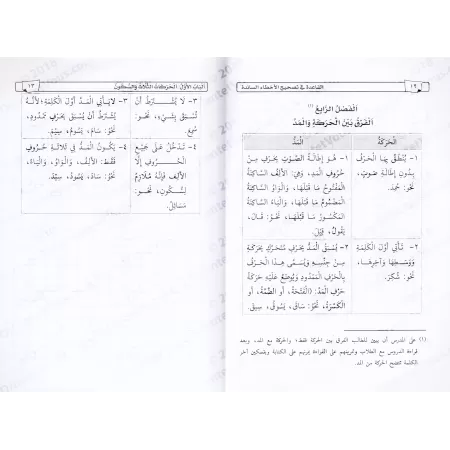 ١٢
القاعدة في تصحيح الأخطاء السائدة
الفَصْلُ الرَّابِعُ (١)
الفَرْقُ بَيْنَ الْحَرَكَةِ وَالْمَدِّ
الْحَرَكَةُ
الْمَدُّ
١- يُنْطَقُ بِهَا الْحَرْفُ
بِدُونِ إِطَالَةِ صَوْتٍ،
نَحْوُ:
١- هُوَ إِطَالَةُ الصَّوْتِ بِحَرْفٍ مِنْ
حُرُوفِ الْمَدِّ، وَهِيَ: الْأَلِفُ السَّاكِنَةُ
الْمَفْتُوحُ مَا قَبْلَهَا، وَالْوَاوُ السَّاكِنَةُ
الْمَضْمُومُ مَا قَبْلَهَا، وَالْيَاءُ السَّاكِنَةُ
الْمَكْسُورُ مَا قَبْلَهَا، نَحْوُ: قَالَ،
يَقُولُ، قِيْلَ.
٢- تَأْتِي أَوَّلَ الْكَلِمَةِ
وَوَسَطَهَا وَآخِرَهَا،
نَحْوُ: شُكِرَ.
٢- يُسْبَقُ الْمَدُّ بِحَرْفٍ مُتَحَرِّكٍ بِحَرَكَةٍ
مِنْ جِنْسِهِ وَيُسَمَّى هَذَا الْحَرْفُ
بِالْحَرْفِ الْمَمْدُودِ وَيُوْضَعُ عَلَيْهِ حَرَكَةُ
حَرْفِ الْمَدِّ: (الْفَتْحَةُ، أَوِ الضَّمَّةُ، أَوِ
الْكَسْرَةُ)، نَحْوُ: سَاقَ، يَسُوْقُ، سِيْقَ.
(١) على المدرس أن يبين للطالب الفرق بين الحركة فقط، والحركة مع المد. وبعد
قراءة الدروس مع الطلاب وتمرينهم على القراءة يمرنهم على الكتابة
الكلمة الحركة من المد.
الباب الأول: الحركات الثلاث والسكون
١٣
٣- لَا يُشْتَرَطُ أَنْ
تُسْبَقَ بِشَيْءٍ، نَحْوُ:
٣- لَا يَأْتِي الْمَدُّ أَوَّلَ الْكَلِمَةِ؛ لِأَنَّهُ
يُشْتَرَطُ أَنْ يُسْبَقَ بِحَرْفٍ مَمْدُودٍ،
نَحْوُ: سَامَ، يَسُوْمُ، سِيْمَ.
٤- تَدْخُلُ عَلَى جَمِيْعِ
الْحُرُوفِ إِلَّا
الْأَلِفَ فَإِنَّهُ مُلَازِمٌ
لِلسُّكُونِ، نَحْوُ:
٤- يَكُونُ الْمَدُّ فِي ثَلَاثَةِ حُرُوفٍ
فَقَطْ: الْأَلِفِ، وَالْوَاوِ، وَالْيَاءِ،
نَحْوُ: سَادَ، يَسُوْدُ،